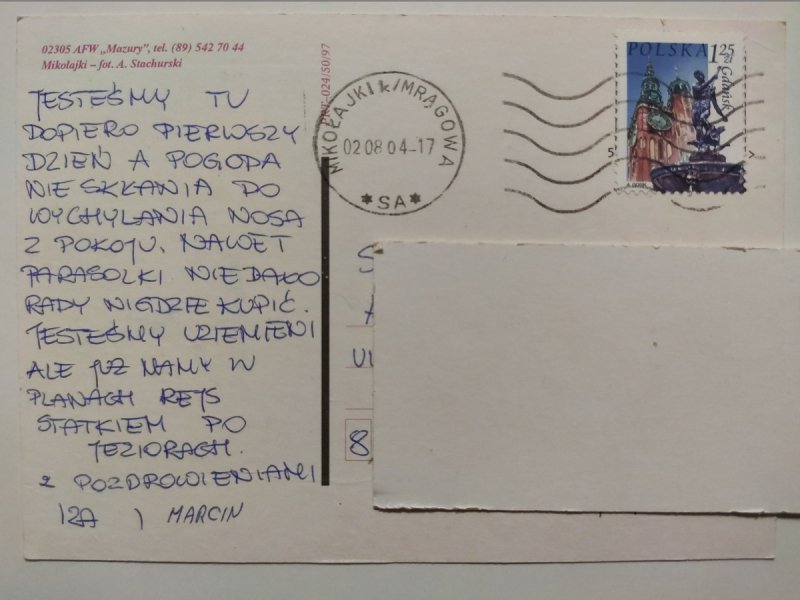 02305 AFW „Mazury”, tel. (89) 542 70 44
Mikołajki – fot. A. Stachurski
JESTEŚMY TU
DOPIERO PIERWSZY
DZIEŃ A POGODA
NIE SKŁANIA DO
WYCHYLANIA NOSA
Z POKOJU. NAWET
PARASOLKI NIE DAŁO
RADY NIGDZIE KUPIĆ.
JESTEŚMY UZIEMIENI
ALE JUŻ MAMY W
PLANACH REJS
STATKIEM PO
JEZIORACH.
Z POZDROWIENIAMI
IZA I MARCIN
024/50/97
MIKOŁAJKI k/MRĄGOWA
02 08 04-17
*SA*
POLSKA 1,25
zł
Gdańsk
S
UL
8